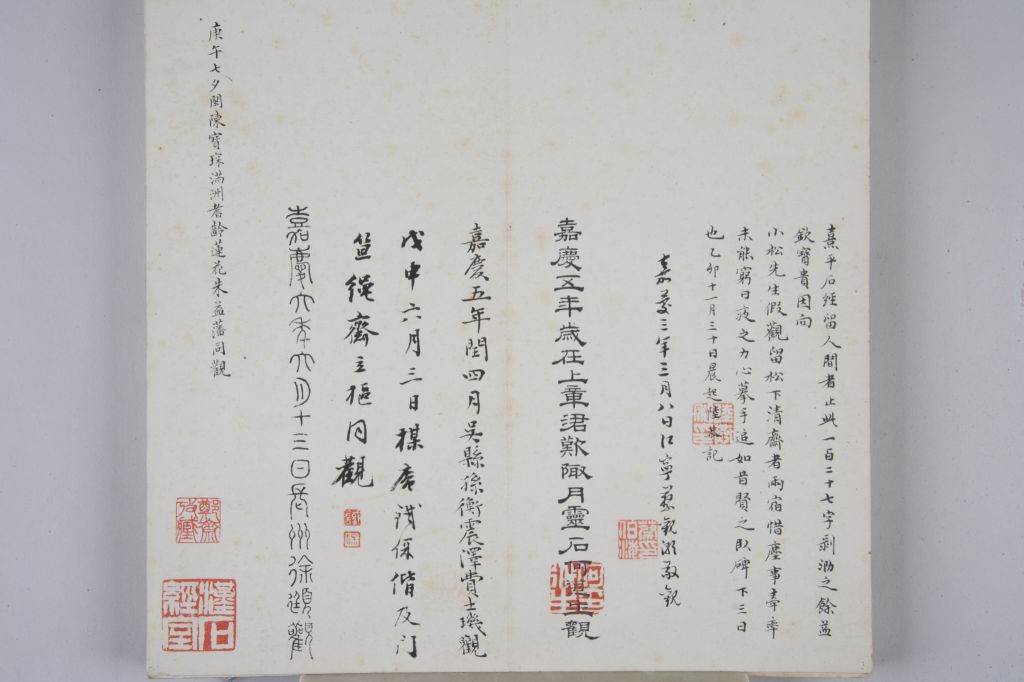 熹平石經留人間者止此一百二十七字剥泐之餘益
欽寶貴因向
小松先生假觀留松下清齋者兩宿惜塵事牽率
未能窮日疲之力心摹手追如昔賢之臥碑下三日
也乙卯十一月三十日晨起陸恭記
嘉慶三年三月八日江寧敬觀
嘉慶五年歲在上章涒歎陬月靈石何道生觀
嘉慶五年閏四月吳縣孫衡震澤費士璣觀
戊申六月三日楳庵成保偕及门
笪繩齋立樞同觀
嘉慶六年六月十三日長州徐頲觀
庚午七夕閩陳寶琛滿洲耆齡蓮花朱益藩同觀
漢石經室